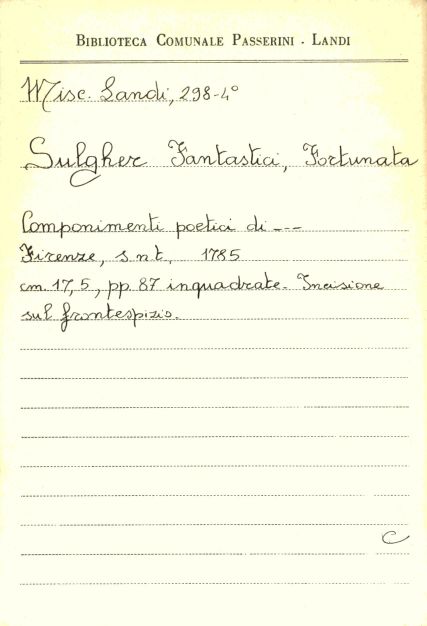 BIBLIOTECA COMUNALE PASSERINI - LANDI
Misc. Landi, 298-4°
Sulgher Fantastici, Fortunata
Componimenti poetici di ---
Firenze, s.n.t., 1785
cm. 17,5, pp. 87 inquadrate. Incisione
sul frontespizio.
C